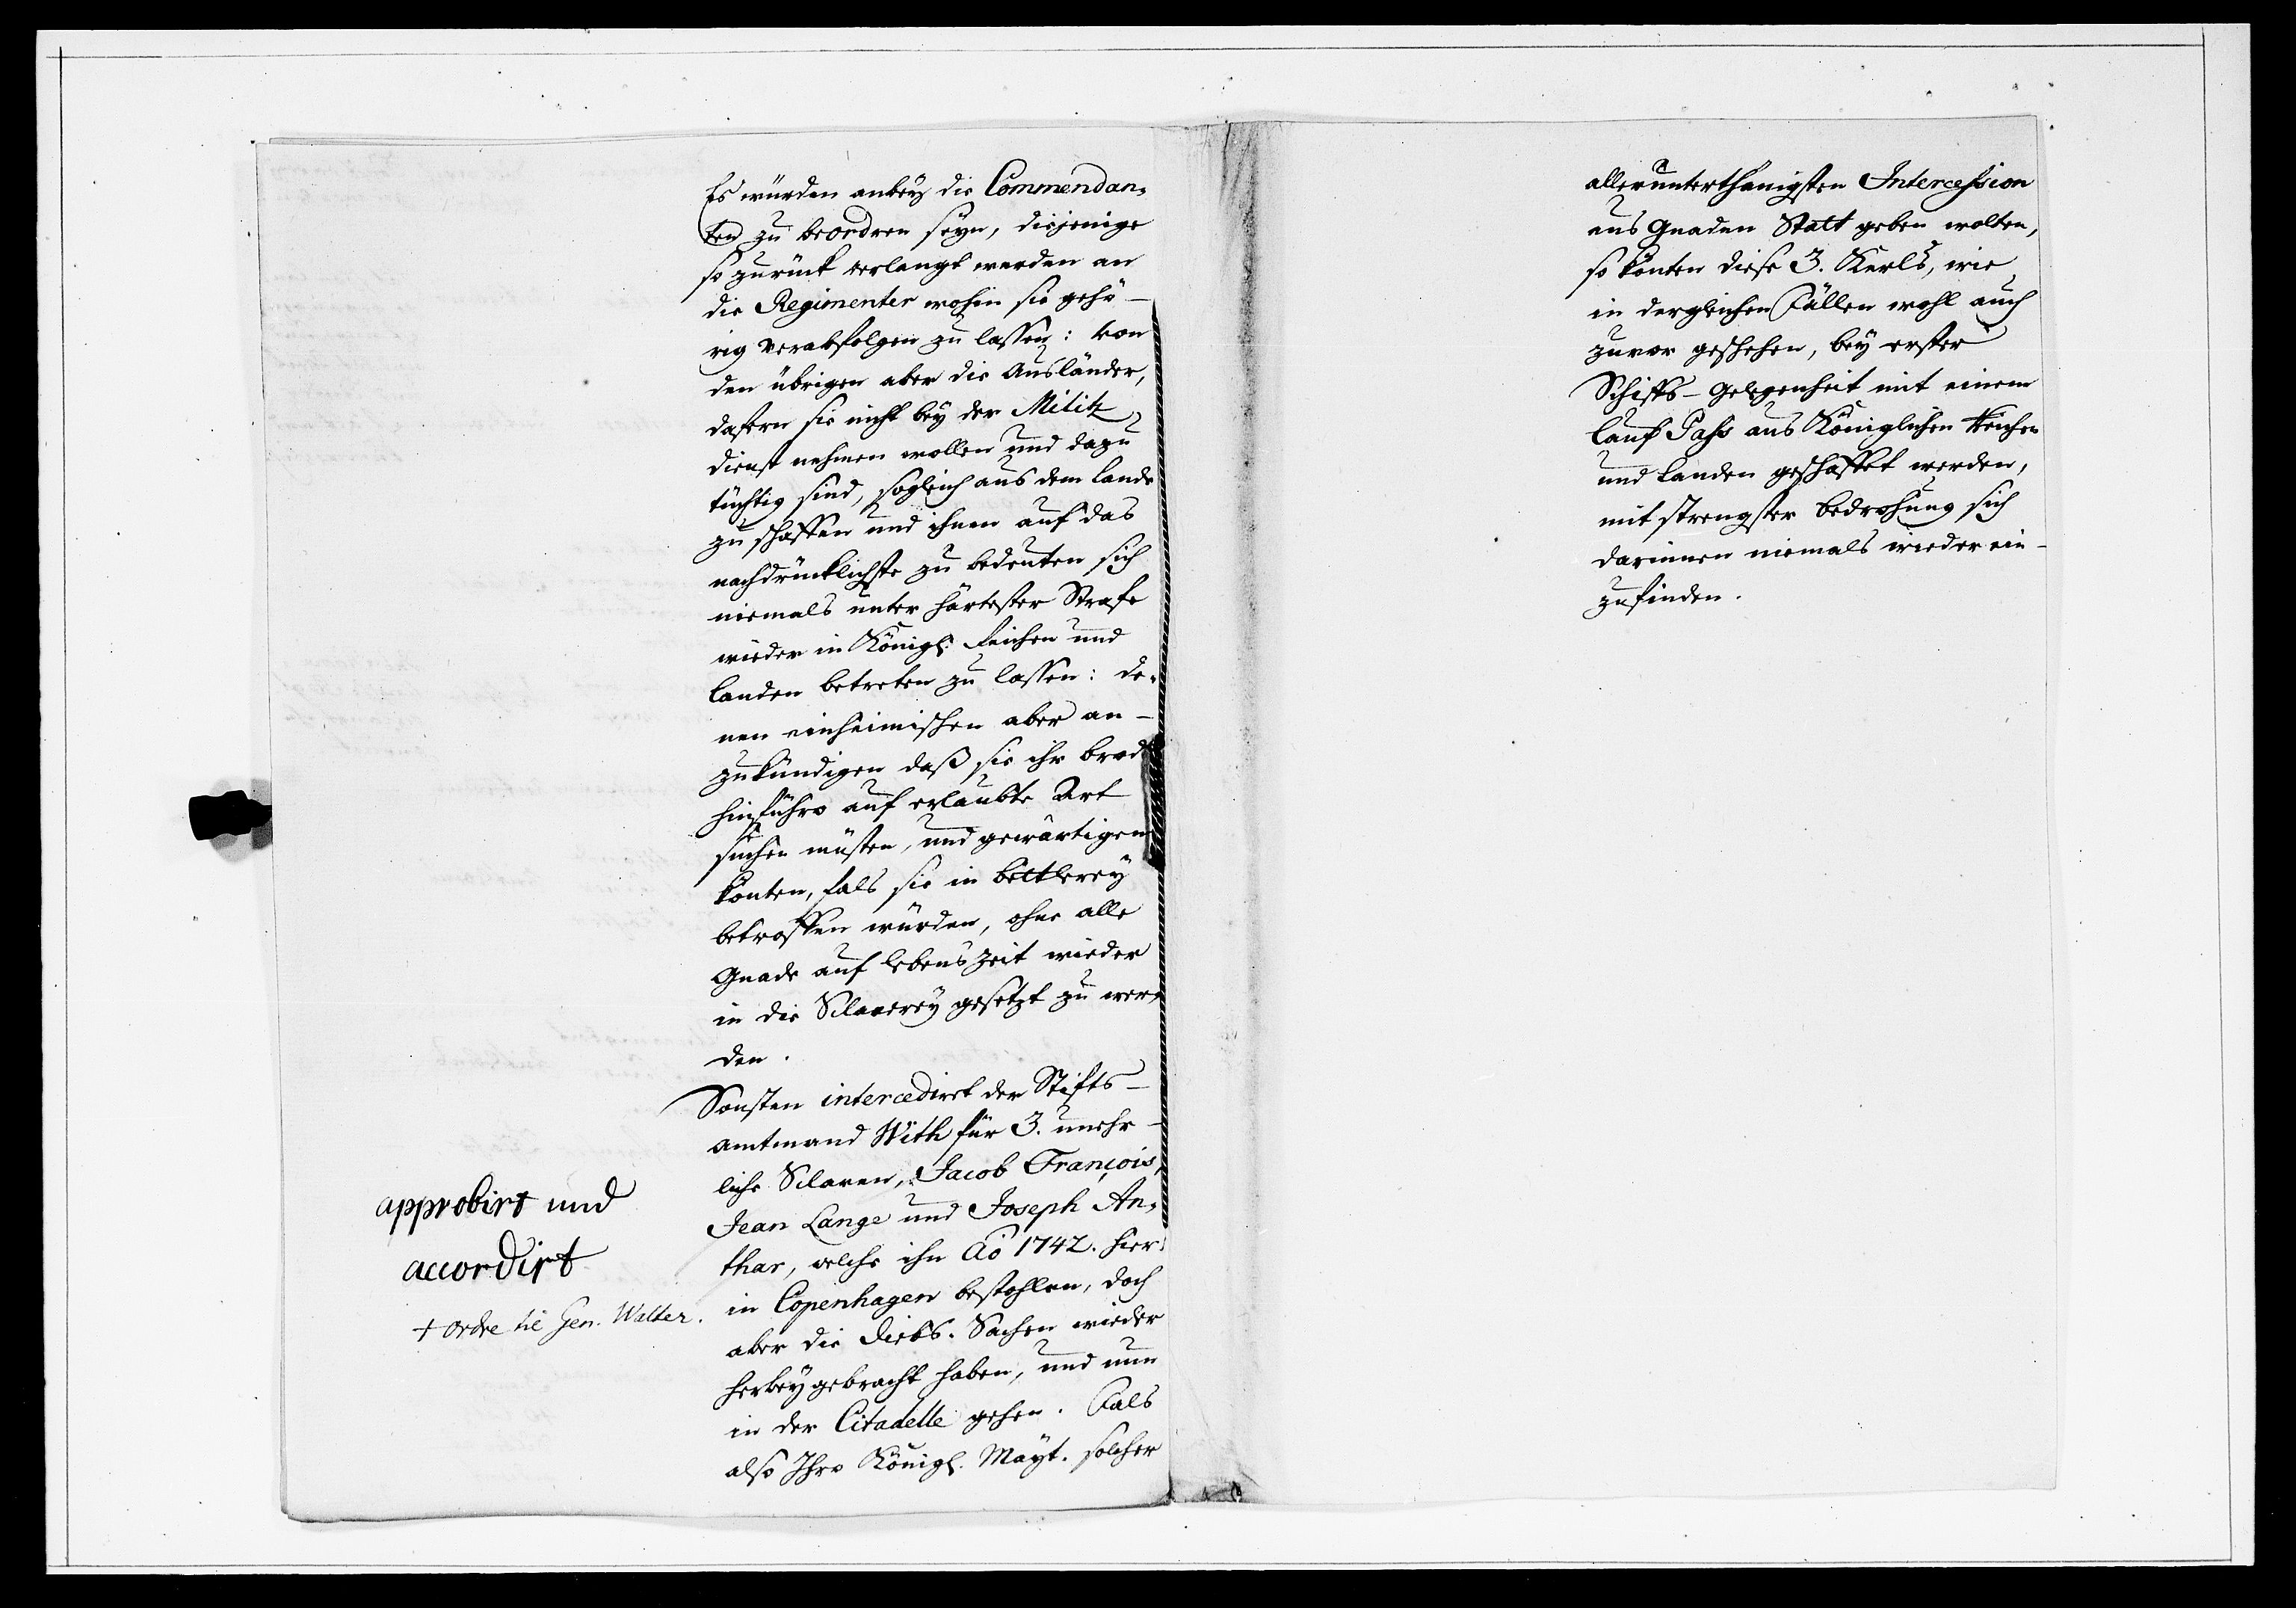 Es würden anbey die Commendan-
ten zu beordren seyn, diejenige
so zurück verlangt werden an
die Regimenter wohin sie gehö-
rig verabfolgen zu lassen: von
den übrigen aber die Ausländer,
dafern sie nicht bey der Militz
dienst nehmen wollen und dazu
tüchtig sind, sogleich aus dem lande
zu schaffen und ihnen auf das
nachdrücklichste zu bedeuten sich
niemals unter härtester Strafe
wieder in Königl. Reichen und
landen betreten zu lassen: de-
nen einheimischen aber an-
zukündigen daß sie ihr brod
hinführo auf erlaubte Art
suchen müsten, und gewärtigen
könten, fals sie in bettlerey
betroffen würden, ohne alle
Gnade auf lebenszeit wieder
in die Sclaverey gesetzt zu wer-
den.
Sonsten intercedirt der Stifts-
amtmand With für 3. unehr-
liche Sclaven, Jacob François,
Jean Lange und Joseph An-
thar, welche ihn Aõ 1742. hier
in Copenhagen bestohlen, doch
aber die diebs-Sachen wieder
herbeygebracht haben, und nun
in der Citadelle gehen. Fals
also Ihro Königl. Mayt. solcher
approbirt und
accordirt
+ ordre til Gen. Walter.
allerunterthänigsten Intercession
aus Gnaden Statt geben wolten,
so könten diese 3. Kerls, wie
in dergleichen Fällen wohl auch
zuvor geschehen, bey erster
Schiffs-Gelegenheit mit einem
lauf Pass aus Königlichen Reichen
und landen geschaffet werden,
mit strengster bedrohung sich
darinnen niemals wieder ein-
zufinden.